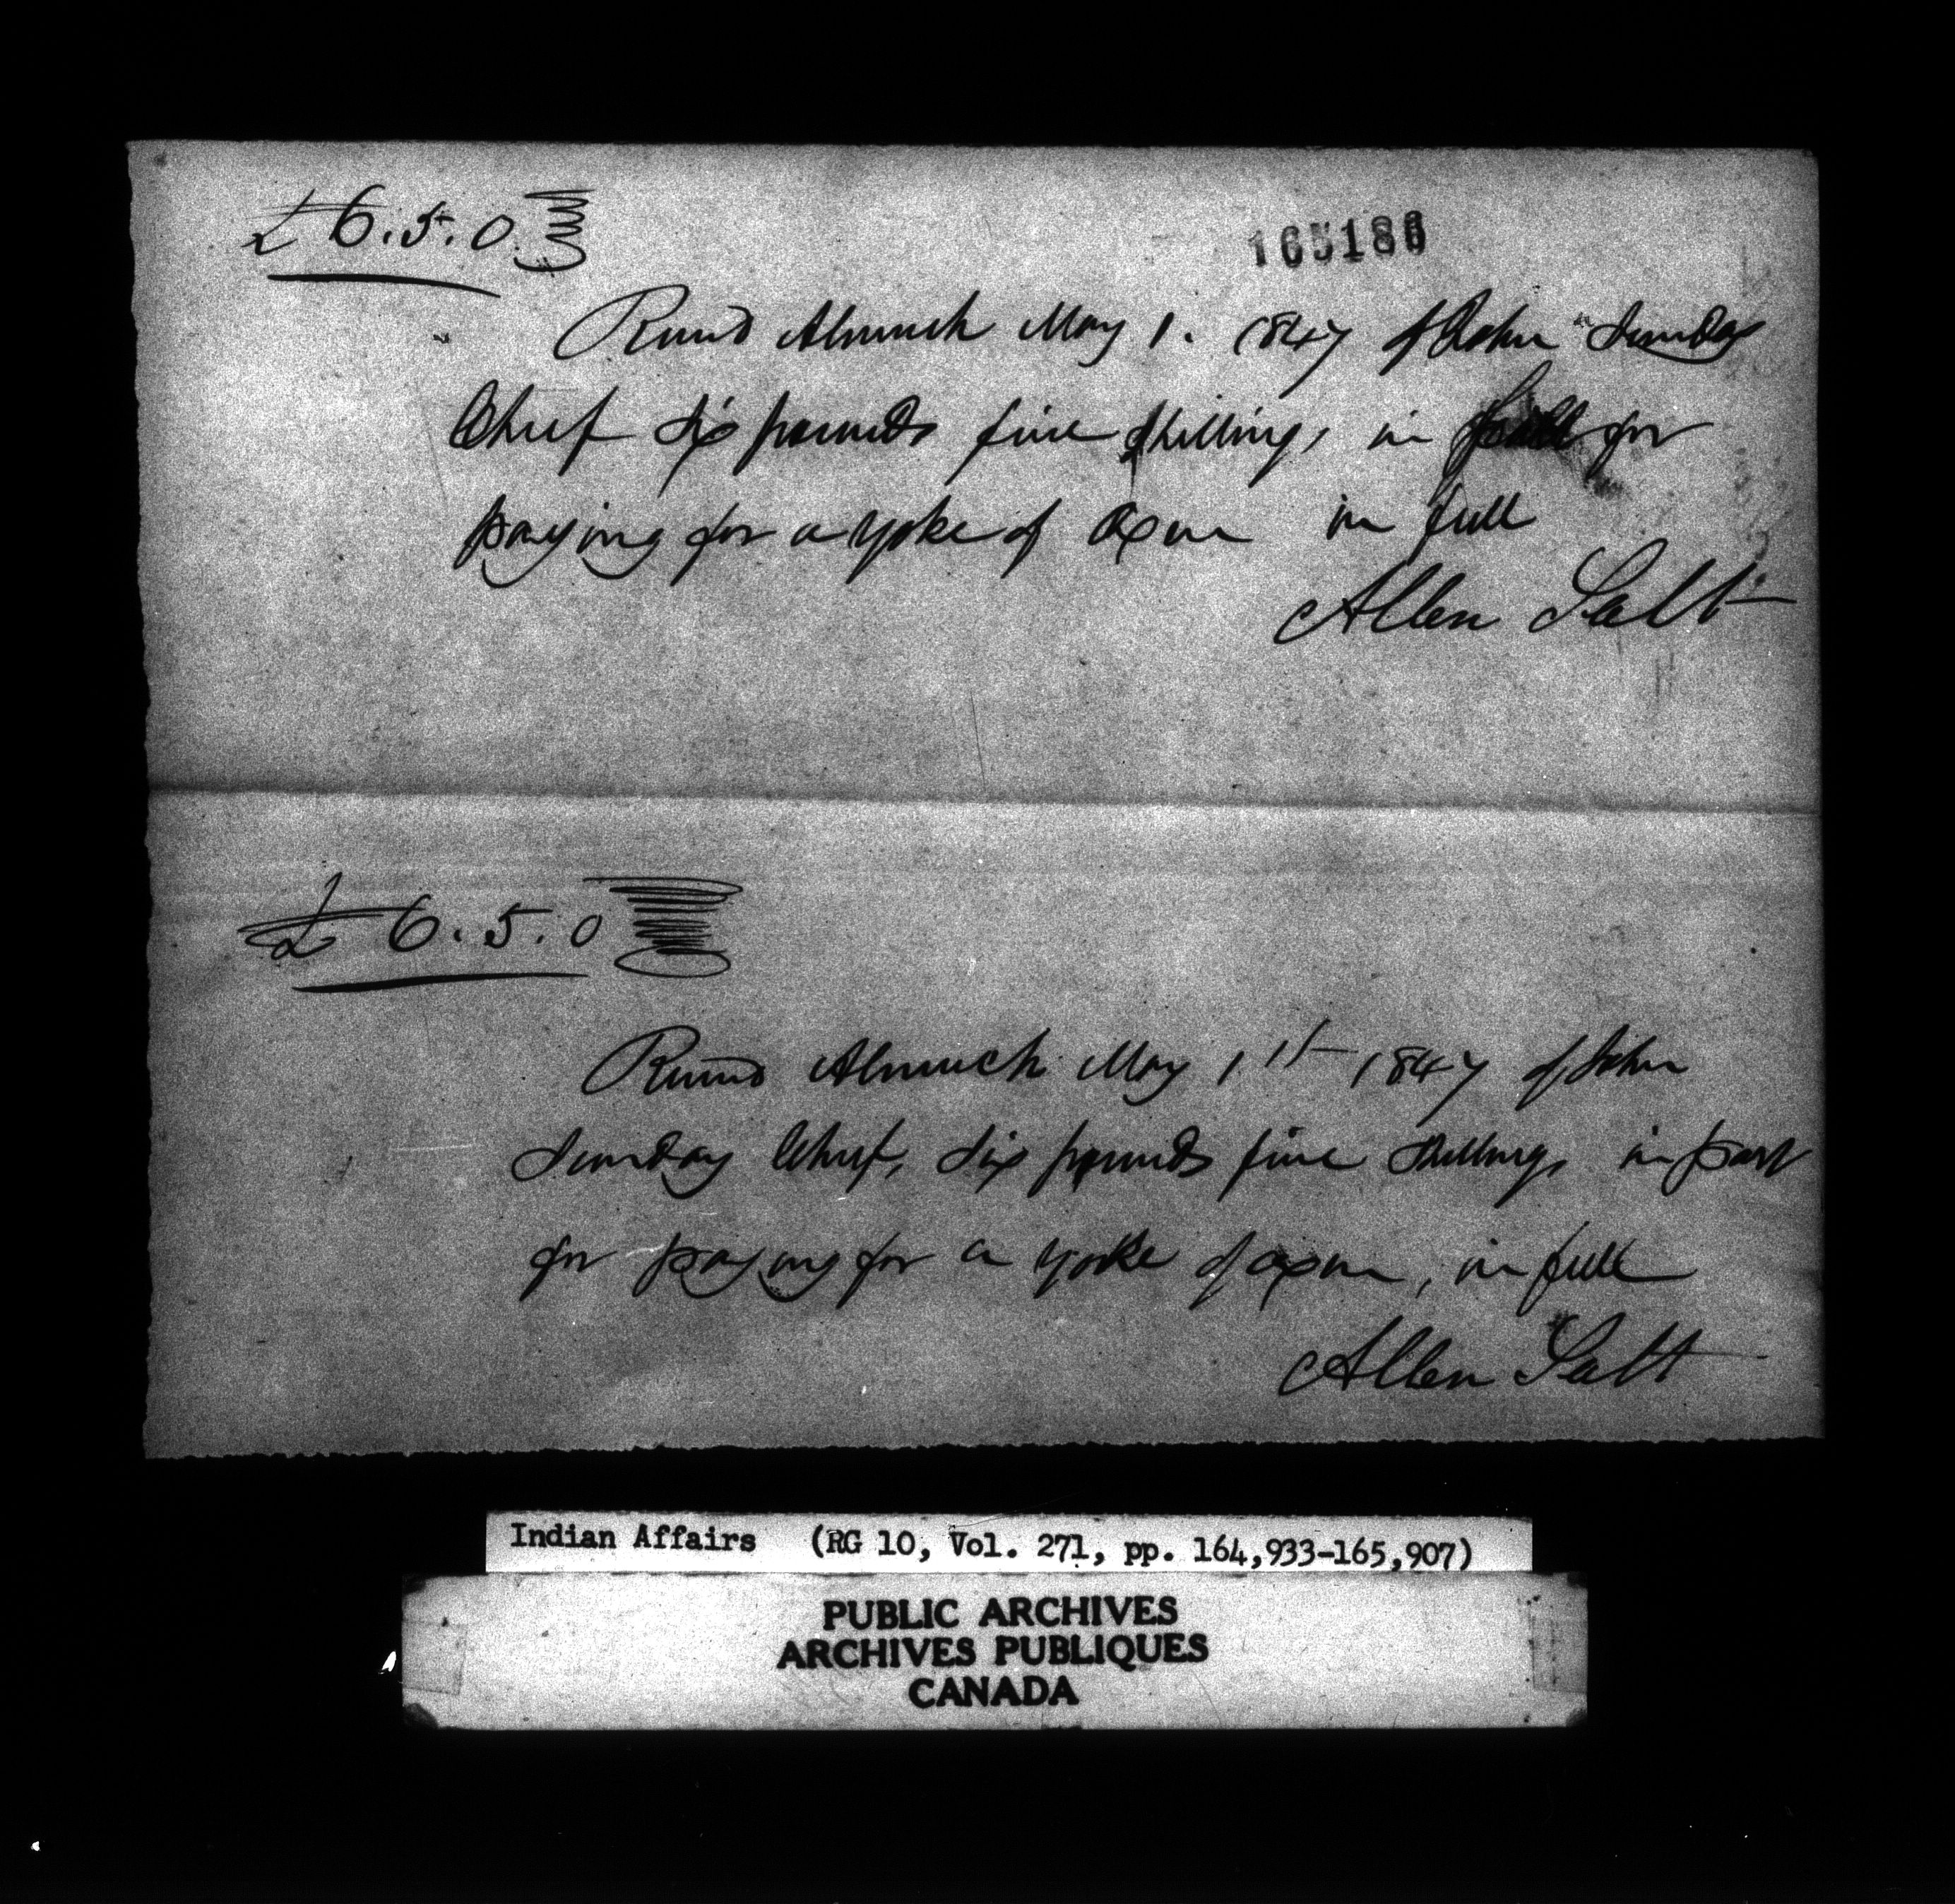 £6.5.0
165186
Recvd Alnwick May 1. 1847 of John Sunday
Chief Six pounds five Shillings in for
paying for a yoke of Oxen in full
Allen Salt
£6.5.0
Recvd Alnwick May 1st 1847 of John
Sunday Chief, Six pounds five Shillings in part
for paying for a yoke of oxen, in full
Allen Salt
Indian Affairs (RG 10, Vol. 271, pp. 164,933-165,907)
PUBLIC ARCHIVES
ARCHIVES PUBLIQUES
CANADA